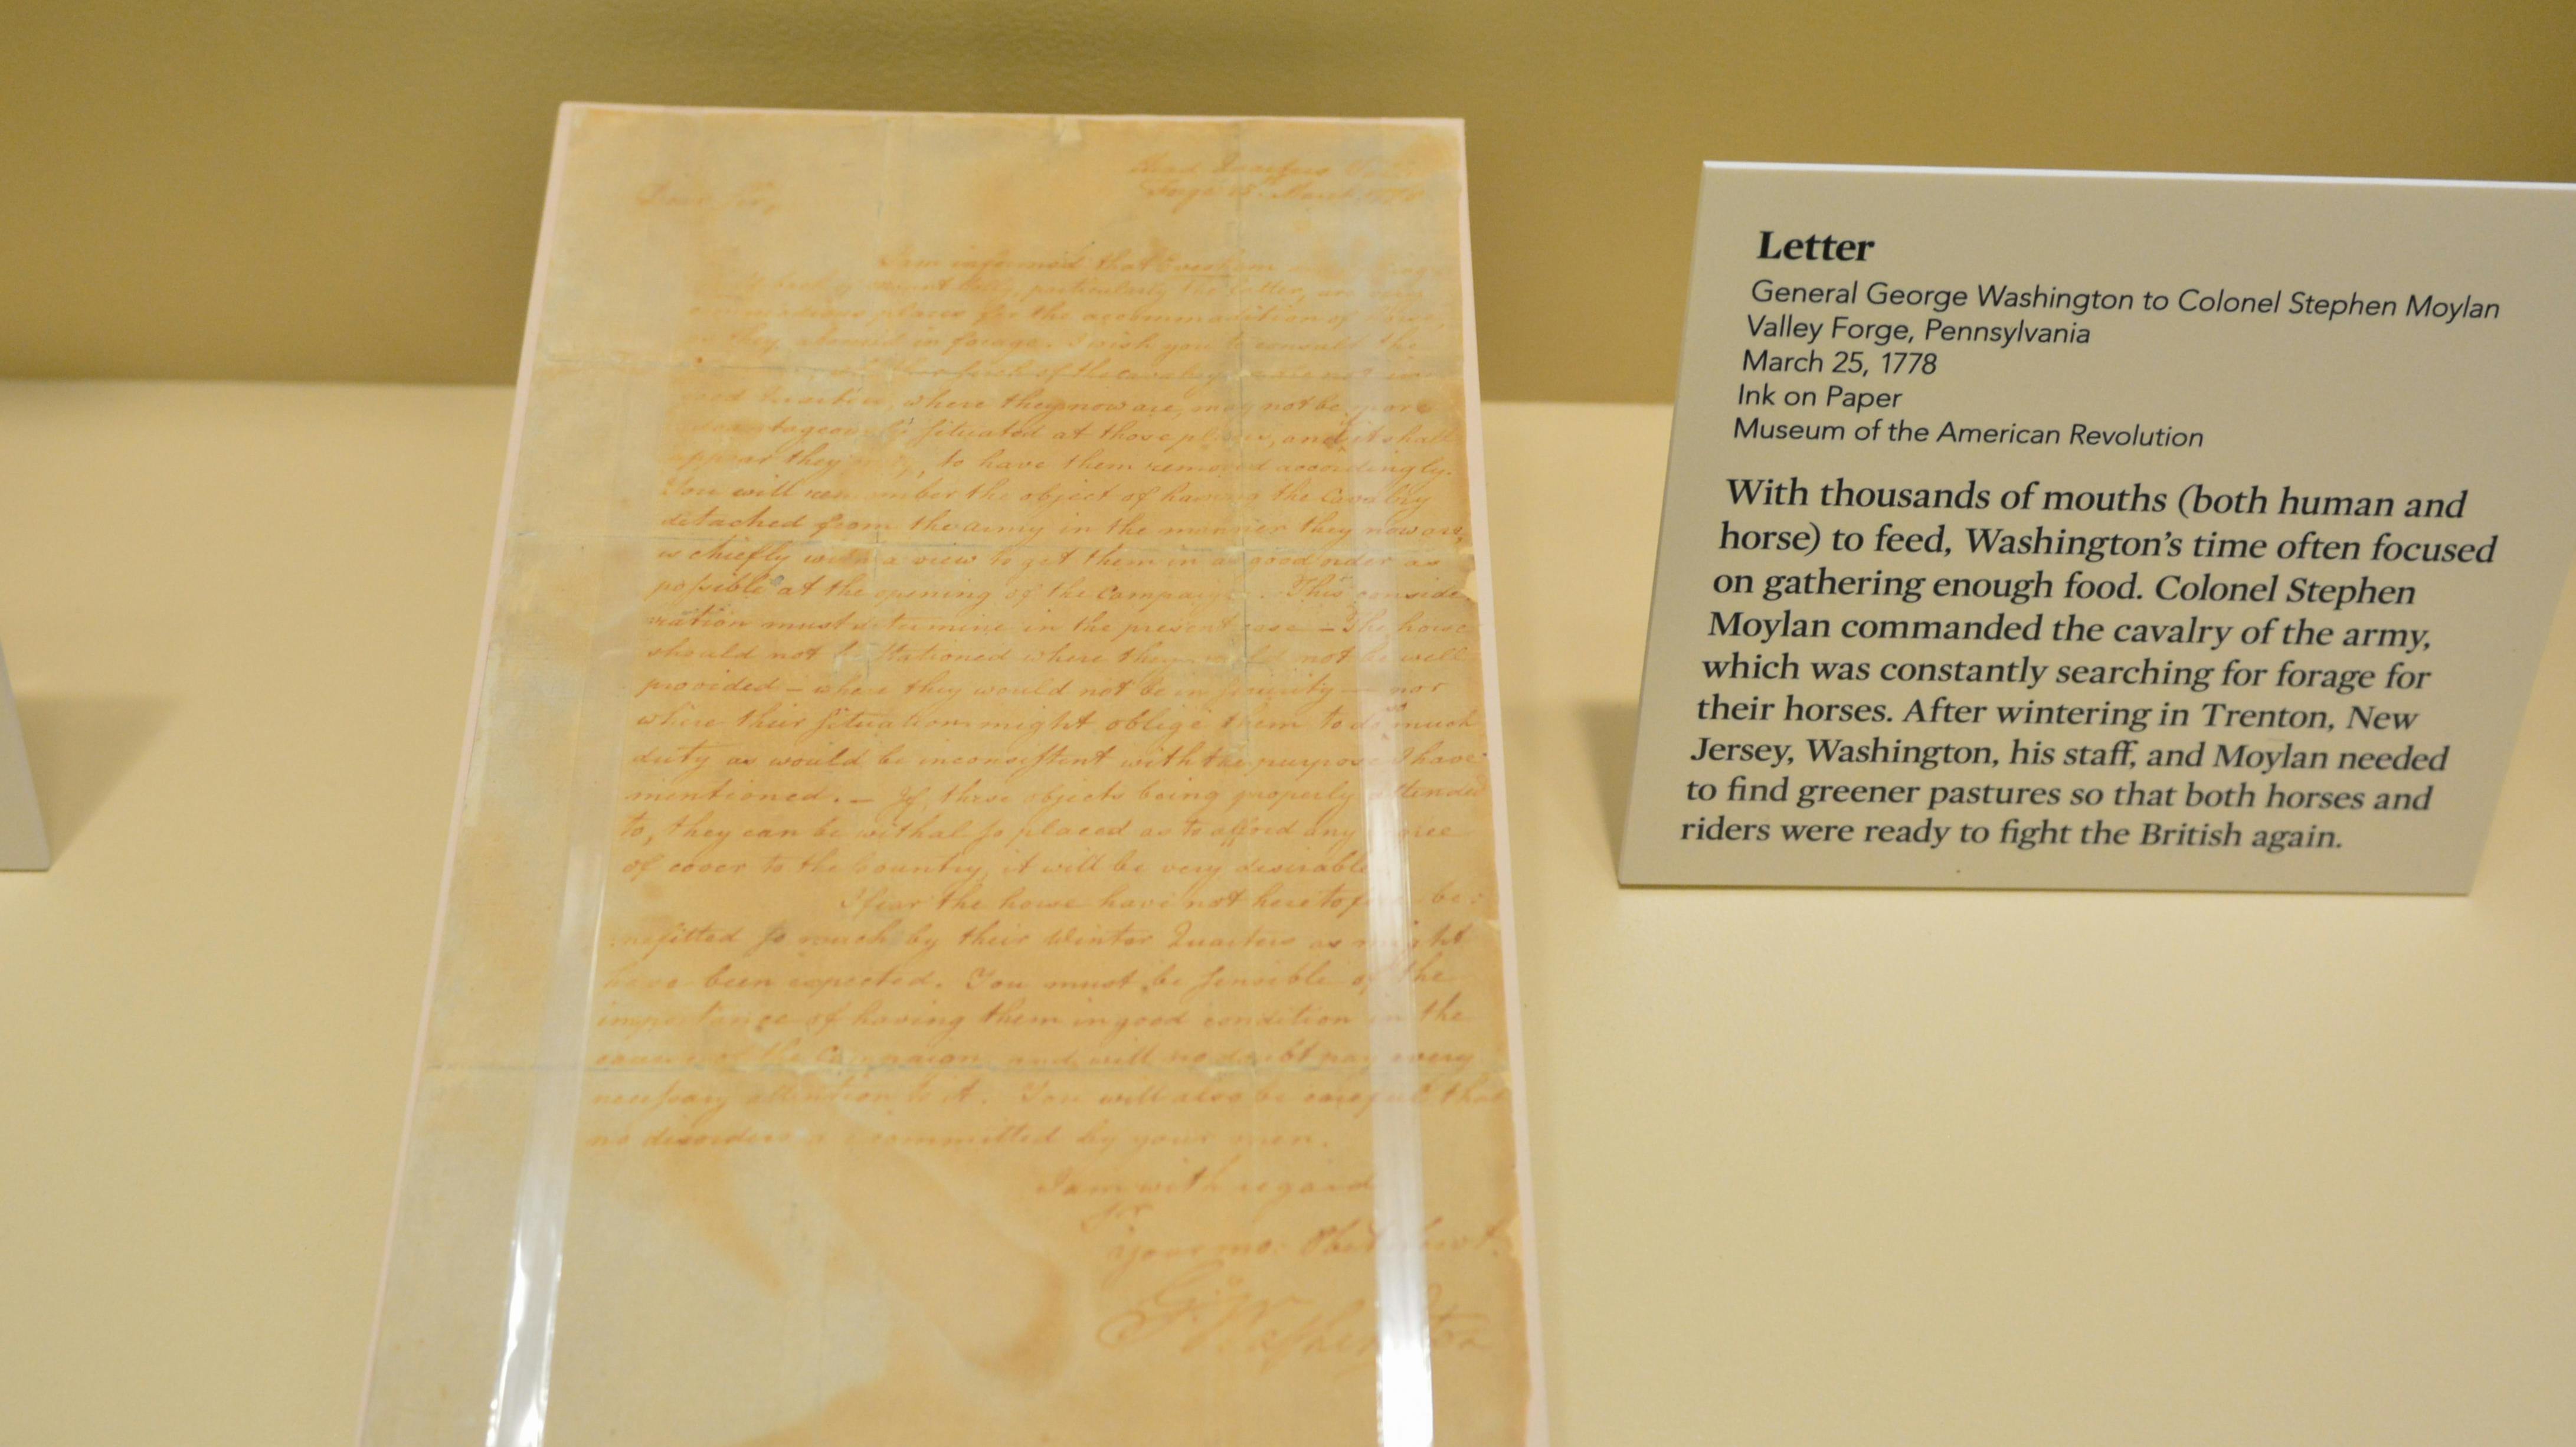 Dear Sir,
Head Quarters
Forge 25 March 1778
I am informed that Evesham
particularly the latter,
places for the accommodation of
they abound in forage. I wish you to consult the
of the cavalry are not in
good quarters, where they now are, may not be more
advantageously situated at those places, and if it shall
appear they may, to have them removed accordingly.
You will remember the object of having the Cavalry
detached from the army in the manner they now are,
is chiefly with a view to get them in as good order as
possible at the opening of the Campaign. This conside
ration must determine in the present case — The horse
should not be stationed where they would not be well
provided — where they would not be in security — nor
where their situation might oblige them to do much
duty as would be inconsistent with the purpose I have
mentioned. — If, these objects being properly attended
to, they can be withal so placed as to afford any degree
of cover to the Country, it will be very desirable
I fear the horse have not heretofore be-
nefitted so much by their Winter Quarters as might
have been expected. You must be sensible of the
importance of having them in good condition in the
course of the Campaign and will no doubt pay every
necessary attention to it. You will also be careful that
no disorders committed by your men.
I am with regard
Sir
Your mo: Obed. Servt.
G:o Washington
Letter
General George Washington to Colonel Stephen Moylan
Valley Forge, Pennsylvania
March 25, 1778
Ink on Paper
Museum of the American Revolution
With thousands of mouths (both human and
horse) to feed, Washington's time often focused
on gathering enough food. Colonel Stephen
Moylan commanded the cavalry of the army,
which was constantly searching for forage for
their horses. After wintering in Trenton, New
Jersey, Washington, his staff, and Moylan needed
to find greener pastures so that both horses and
riders were ready to fight the British again.